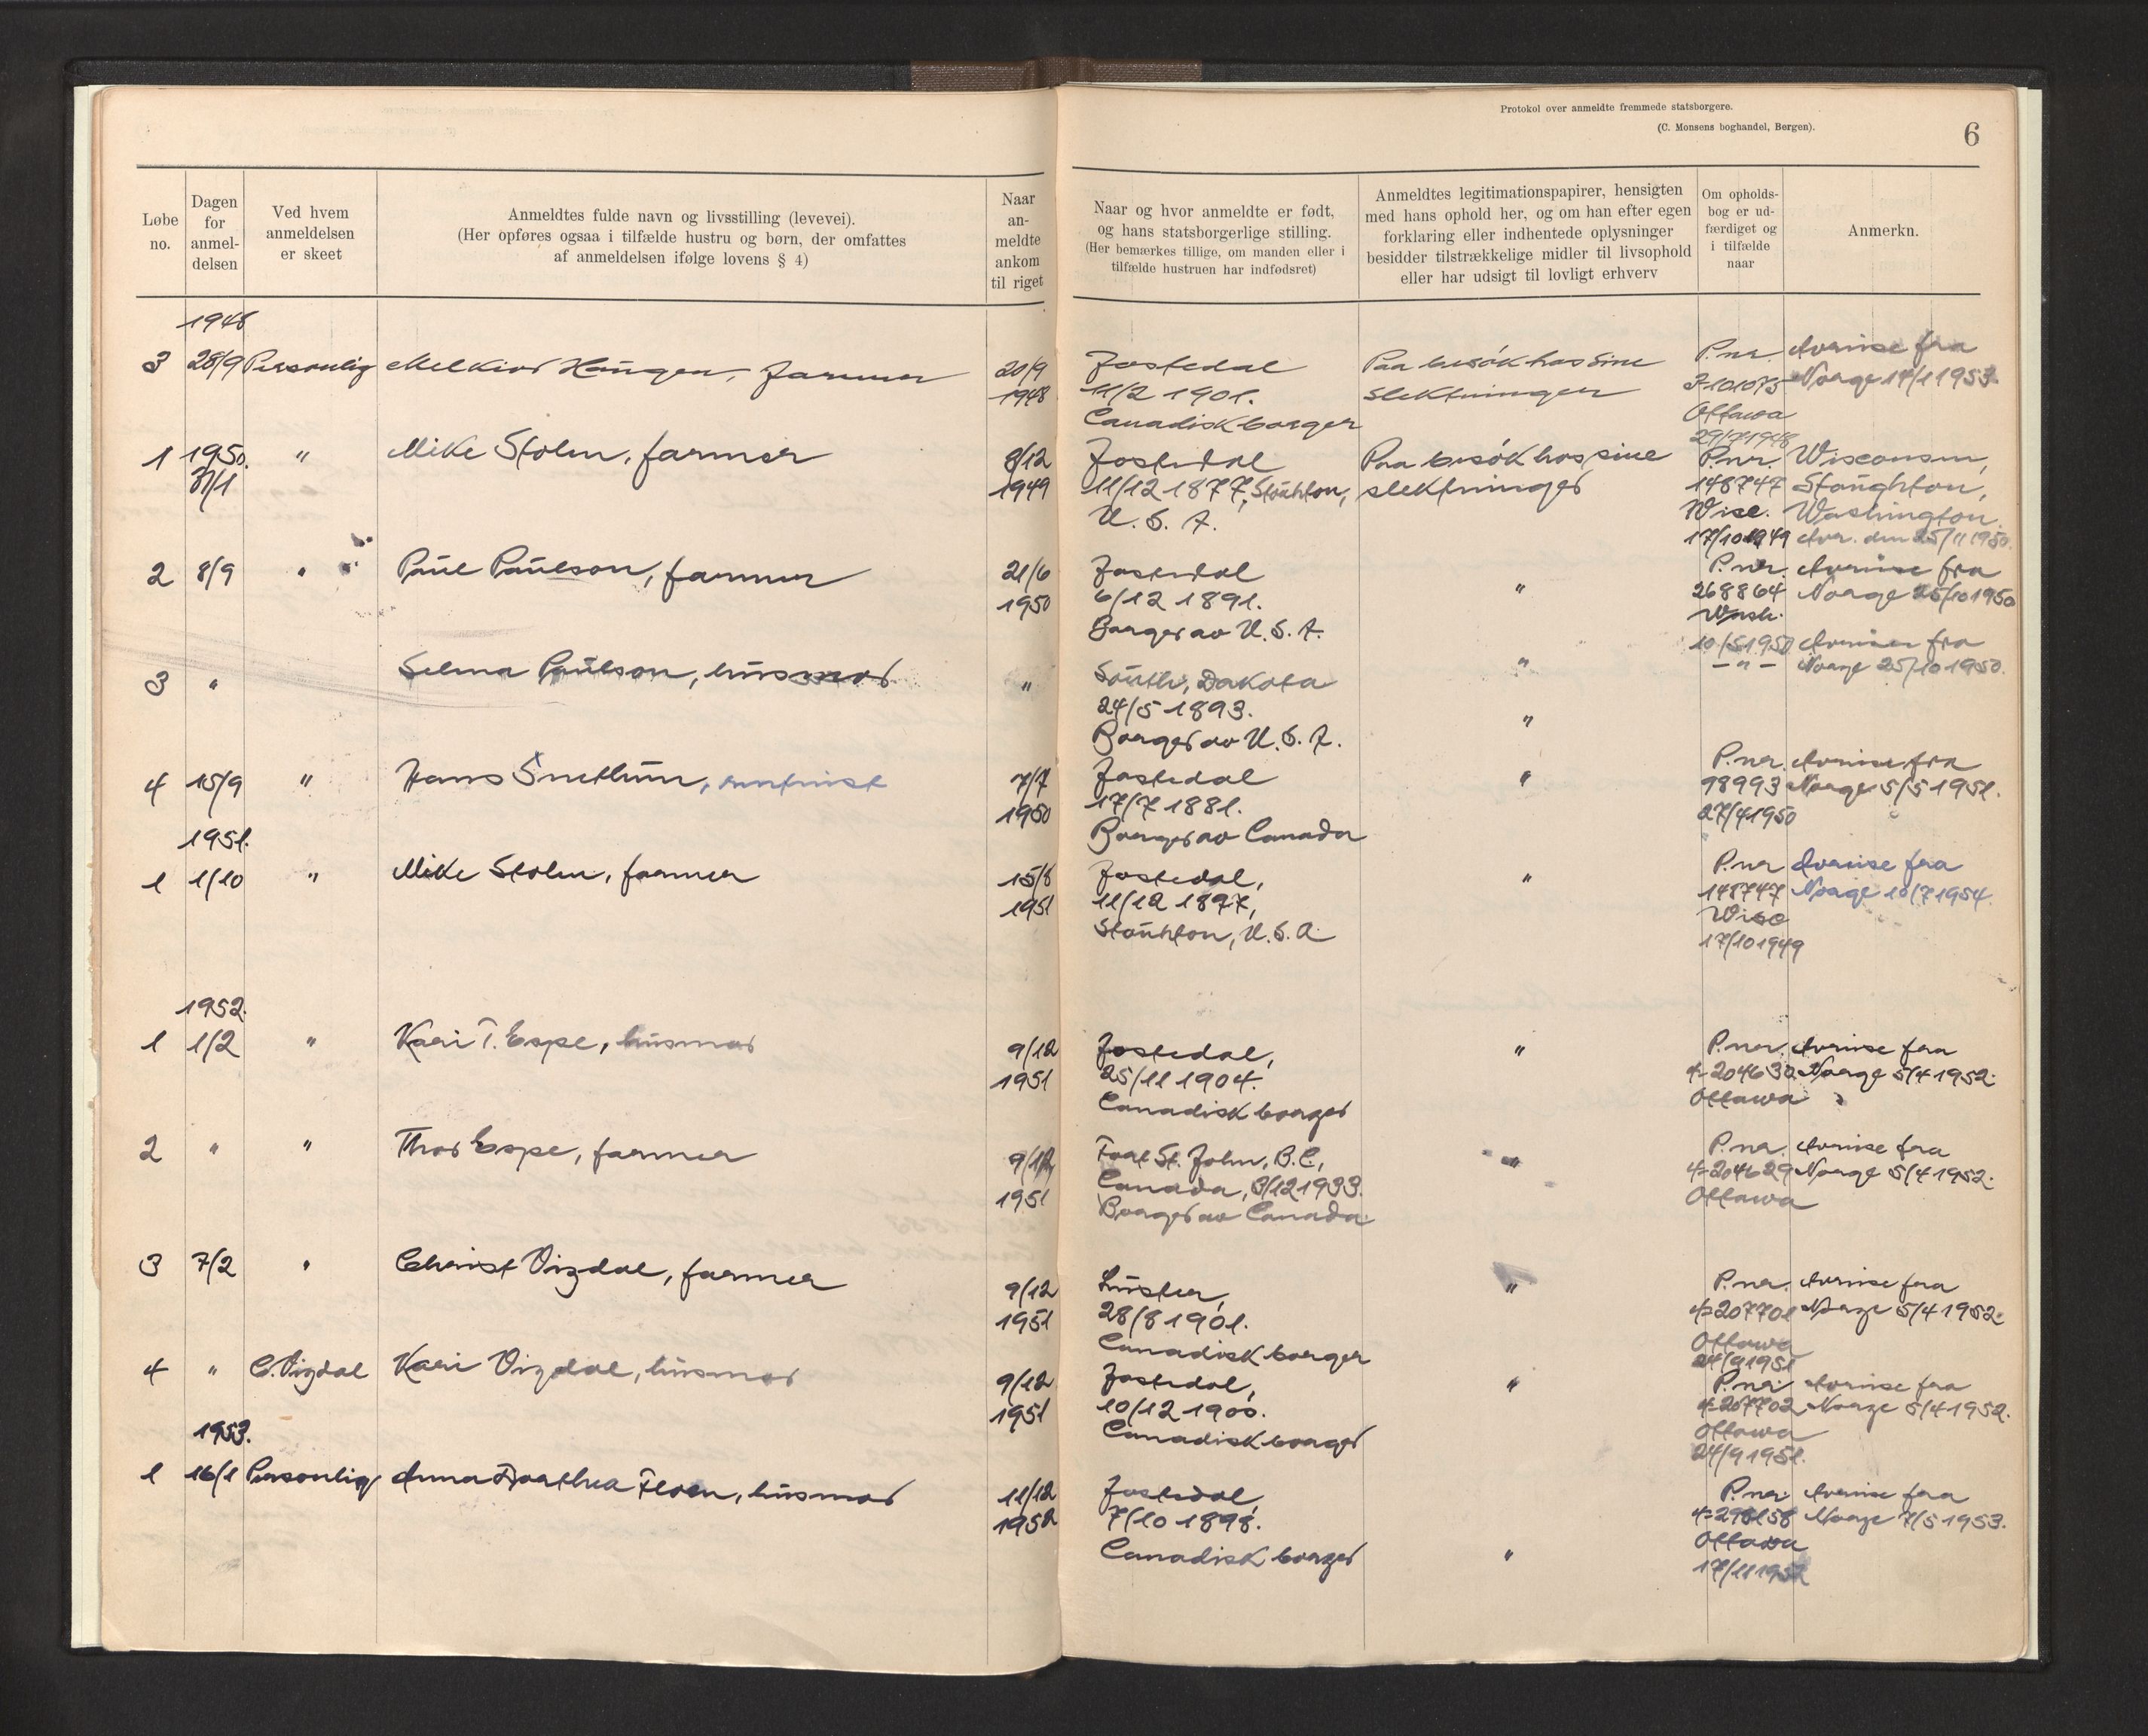 Protokol over anmeldte fremmede statsborgere.
(C. Monsens boghandel, Bergen).
6
Løbe no.
Dagen for anmel- delsen
Ved hvem anmeldelsen er skeet
Anmeldtes fulde navn og livsstilling (levevei).
(Her opføres ogsaa i tilfælde hustru og børn, der omfattes
af anmeldelsen ifølge lovens § 4)
Naar an- meldte ankom til riget
Naar og hvor anmeldte er født,
og hans statsborgerlige stilling.
(Her bemærkes tillige, om manden eller i
tilfælde hustruen har indfødsret)
Anmeldtes legitimationspapirer, hensigten
med hans ophold her, og om han efter egen
forklaring eller indhentede oplysninger
besidder tilstrækkelige midler til livsophold
eller har udsigt til lovligt erhverv
Om opholds- bog er ud- færdiget og i tilfælde naar
Anmerkn.
1948
3 28/9 Personlig Melkior Haugen, farmer 20/9 Jostedal Paa besök hos sine P.nr. Avreise fra
1948 11/2 1901. slektninger 3-101075 Norge 14/1 1953.
Canadisk borger Ottawa
29/7 1948
1 1950. " Mike Stolen, farmer 8/12 Jostedal Paa besök hos sine P.nr. Wisconsin,
31/1 1949 11/12 1877, Stouhton, slektninger 148747 Stoughton,
U. S. A. Wisc. Washington.
17/10 1949 Avr. den 25/11 1950.
2 8/9 " Paul Paulson, farmer 21/6 Jostedal " P.nr. Avreise fra
1950 6/12 1891. 268864 Norge 25/10 1950
Borger av U. S. A. Wash.
10/5 1950 Avreise fra
3 " Selma Paulson, husmor " South, Dakota " – " – Norge 25/10 1950.
24/5 1893. "
Borger av U. S. A.
4 15/9 " Hans Snetun, 7/7 Jostedal " P.nr. Avreise fra
1950 17/7 1881. 98993 Norge 5/5 1951.
Borger av Canada 27/4 1950
1951.
1 1/10 " Mike Stolen, farmer 15/8 Jostedal, " P.nr Avreise fra
1951 11/12 1877, 148747 Norge 10/7 1954.
Stouhton, U. S. A. Wisc
17/10 1949
1952.
1 1/2 " Kari T. Espe, husmor 9/12 Jostedal, " P.nr. Avreise fra
1951 25/11 1904. 4-204630 Norge 5/4 1952.
Canadisk borger Ottawa
2 " " Thor Espe, farmer 9/12 Fort St. John, B.C., " P.nr. Avreise fra
1951 Canada, 3/12 1933. 4-204629 Norge 5/4 1952.
Borger av Canada Ottawa
3 7/2 " Christ Vigdal, farmer 9/12 Luster, " P.nr. Avreise fra
1951 28/8 1901. 4-207701 Norge 5/4 1952.
Canadisk borger Ottawa
24/9 1951
4 " C. Vigdal Kari Vigdal, husmor 9/12 Jostedal, " P.nr. Avreise fra
1951 10/12 1900. 4-207702 Norge 5/4 1952.
Canadisk borger Ottawa
24/9 1951.
1953.
1 16/1 Personlig Anna Dorthea Floen, husmor 11/12 Jostedal, P.nr. Avreise fra
1952 7/10 1898. Norge 7/5 1953.
Canadisk borger " Ottawa
17/11 1952